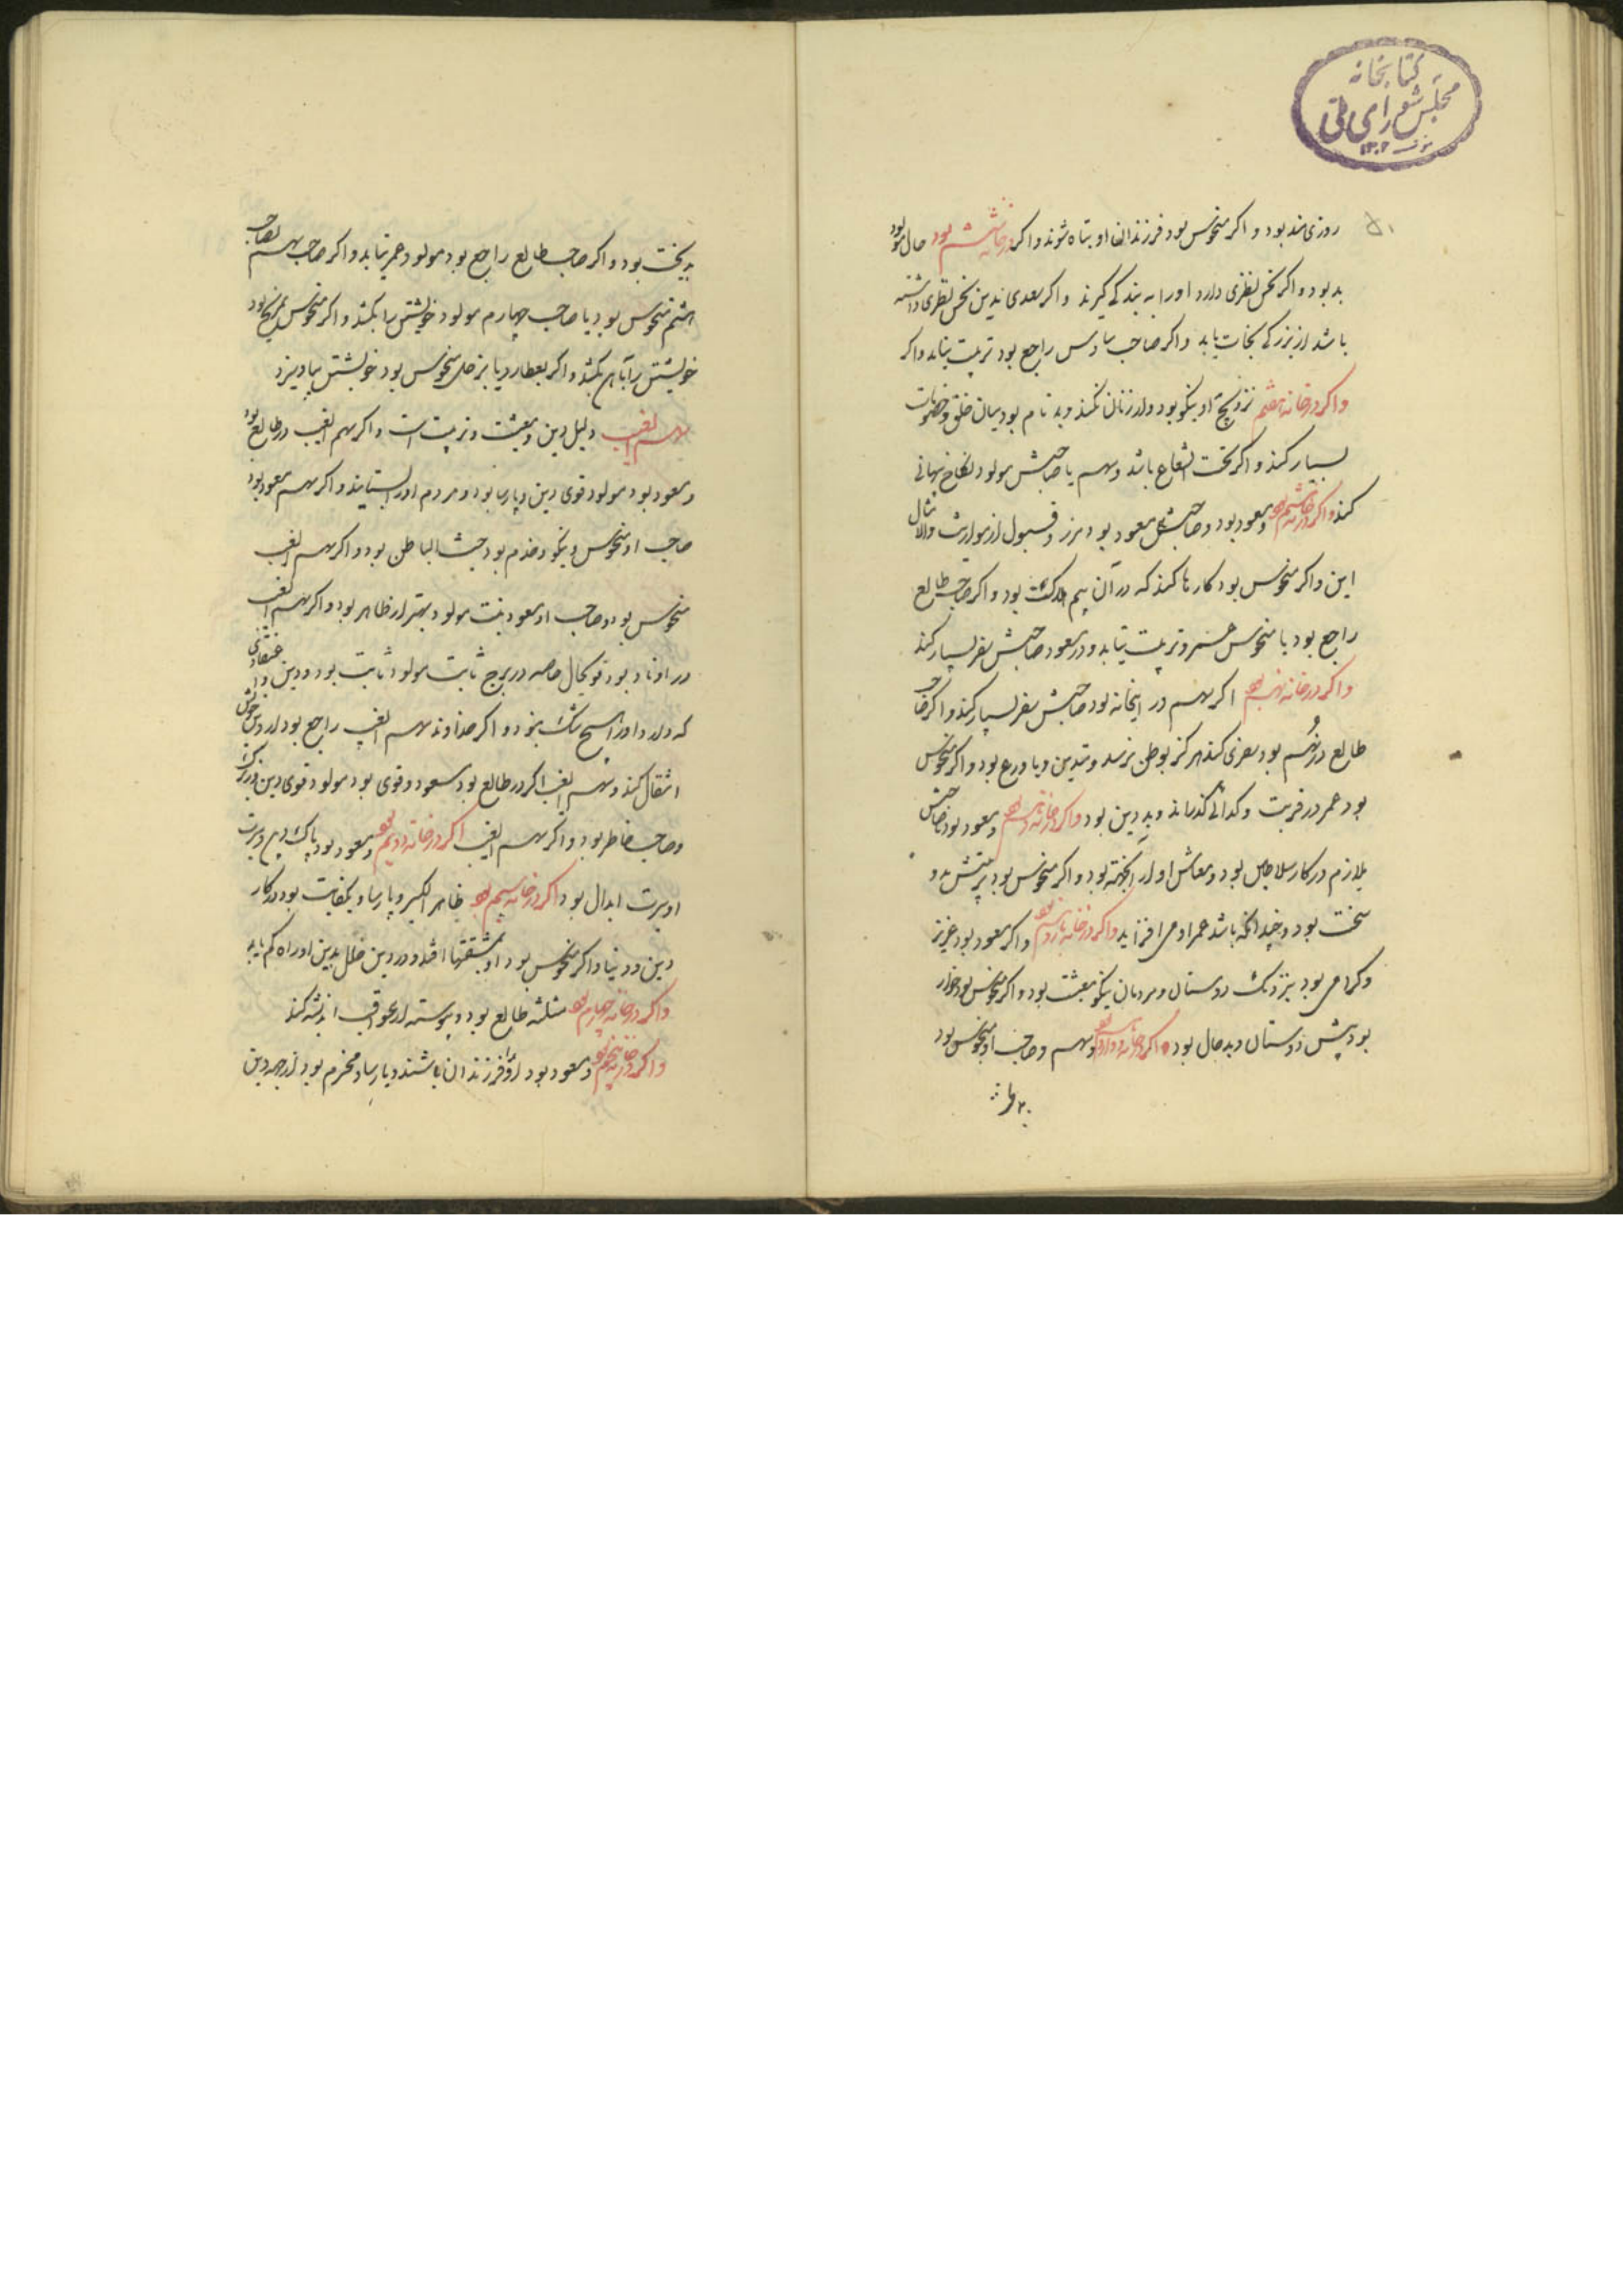 کتابخانه
مجلس شورای ملی
۱۳۰۲
۵۱
روزی مند بود و اکر منحوس بود فرزندان او تباه شوند و اکر در خانه ششم بود حال مولود
بد بود و اکر نحس نظری دارد او را به بندکی کیرند و اکر سعدی بدین نحس نظری داشته
باشد از بزرکی نجات یابد و اکر صاحب سادس راجع بود تربیت نیابد و اکر
و اکر در خانه هفتم تزویج او نیکو بود و از زنان کند و بد نام بود میان خلق و خصومات
بسیار کند و اکر تحت الشعاع باشد و سهم یا صاحبش مولود نکاح پنهانی
کند و اکر در خانه هشتم بود و مسعود بود و صاحبش مسعود بود
این و اکر منحوس بود کارها کند که در آن بیم هلاکت بود و اکر صاحب طالع
راجع بود یا منحوس تربیت نیابد و در مسعود صاحبش سفر بسیار کند
و اکر در خانه نهم بود اکر سهم در اینخانه بود صاحبش سفر بسیار کند و اکر صاحب
طالع در نهم بود سفری کند هرکز بوطن نرسد و متدین و با ورع بود و اکر منحوس
بود عمر در غربت و کدائی کذراند و بد دین بود و اکر در خانه دهم بود و مسعود بود صاحبش
ملازم در کار سلاطین بود و معاش او از آنجهته بود و اکر منحوس بود
سخت بود و چندانکه باشد عمر او می افزاید و اکر در خانه یازدهم بود و اکر مسعود بود عزیز
و کرامی بود بنزدیک دوستان و مردمان نیکو معیشت بود و اکر منحوس بود خوار
بود پیش دوستان و بد حال بود و اکر در خانه دوازدهم بود و سهم و صاحب او منحوس بود
بدبخت بود و اکر صاحب طالع راجع بود مولود عمر نیابد و اکر صاحب سهم بصاحب
هشتم منحوس بود یا صاحب چهارم مولود خویشتن را بکشد و اکر منحوس بمریخ بود
خویشتن را بآهن بکشد و اکر بعطارد یا بزحل منحوس بود خویشتن بیاویزد
سهم الغیب دلیل دین و معیشت و تربیت است و اکر سهم الغیب در طالع بود
و مسعود بود مولود قوی دین و پارسا بود و مردم او را بستایند و اکر سهم مسعود بود
صاحب او منحوس نیکو بود خبیث الباطن بود و اکر سهم الغیب
منحوس بود و صاحب او مسعود نیت مولود بهتر از ظاهر بود و اکر سهم الغیب
در اوتاد بود قوی حال خاصه در برج ثابت مولود ثابت بود در دین و اعتقادی
که دارد و او را هیچ شک نبود و اکر خداوند سهم الغیب راجع بود از دین خویش
انتقال کند و سهم الغیب اکر در طالع بود مسعود و قوی بود مولود قوی دین و زیرک
و صاحب خاطر بود و اکر سهم الغیب اکر در خانه دویم بود و مسعود بود پاک دین و سیرت
او سیرت ابدال بود و اکر در خانه سیم بود ظاهر الخیر و پارسا و با کفایت بود در کار
دین و دنیا و اکر منحوس بود او بمشقتها افتد و در دین خلل بدین او راه کم یابد
و اکر در خانه چهارم بود مثلثه طالع بود و پیوسته از عواقب اندیشه کند
و اکر در خانه پنجم بود و مسعود بود او را فرزندان باشند و پارسا و محترم بود از جهه دین